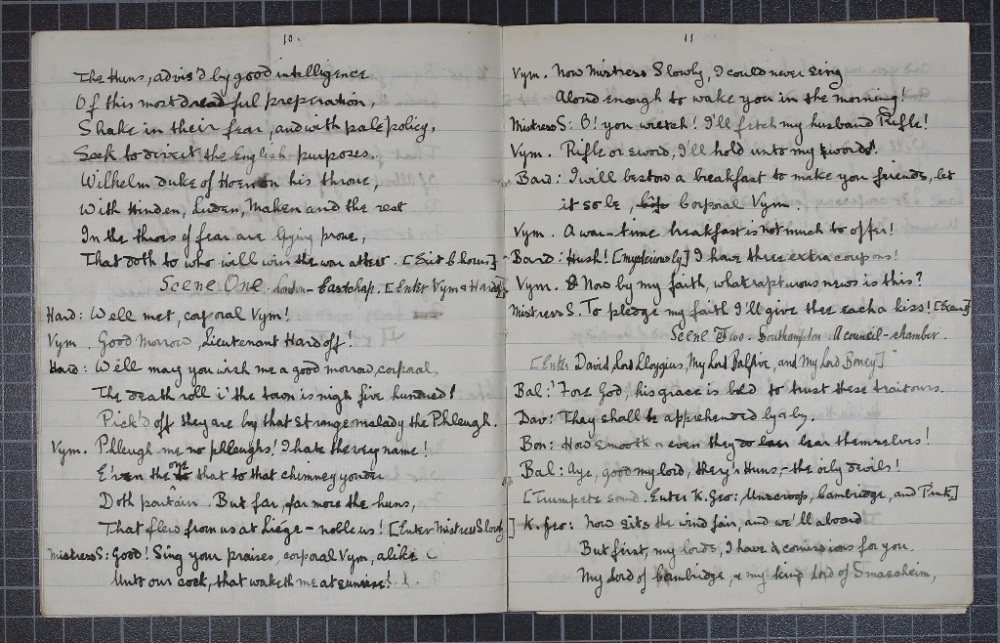 10.
The Huns, advis'd by good intelligence
Of this most dreadful preparation,
Shake in their fear, and with pale policy,
Seek to divert the English purposes.
Wilhelm duke of Hoen on his throne,
With Hinden, Luden, Maken and the rest
In the throes of fear are lying prone,
That doth to who will win the war attest. [Exit Chorus]
Scene One. London - Eastchap. [Enter Vym & Hardoff]
Hard: Well met, corporal Vym!
Vym. Good Morrow, Lieutenant Hardoff!
Hard: Well may you wish me a good morrow, corporal,
The death roll i' the town is nigh five hundred!
Pick'd off they are by that strange malady the Phleugh.
Vym. Phleugh me no phleughs! I hate the very name!
E'ven the one that to that chimney yonder
Doth pertain. But far, far more the huns,
That flew from us at Liége - nobleus! [Enter Mistress Slowly
Mistress S: Good! Sing your praises, corporal Vym, alike
Unto our cock, that waketh me at sunrise!
11
Vym. Now Mistress Slowly, I could never sing
Aloud enough to wake you in the morning!
Mistress S: O! you wretch! I'll fetch my husband Rifle!
Vym. Rifle or sword, I'll hold unto my words!
Bard: I will bestow a breakfast to make you friends, let
it so be, Corporal Vym.
Vym. A war-time breakfast is not much to offer!
Bard: Hush! [mysteriously] I have three extra coupons!
Vym. Now by my faith, what rapturous news is this?
Mistress S. To pledge my faith I'll give thee each a kiss! [Exeunt]
Scene Two. Southampton. A council-chamber.
[Enter David, Lord Lloygius, My Lord Balfive, and My Lord Boney]
Bal: 'Fore God, his grace is bold to trust these traitours.
Dav: They shall be apprehended by & by.
Bon: How smooth & even they do bear themselves!
Bal: Aye, good my lord, they're Huns, - the oily devils!
[Trumpets sound. Enter K. Geo: Unscroop, Cambridge, and Pink]
] K. Geo: Now sits the wind fair, and we'll aboard
But first, my lords, I have a comissions for you.
My Lord of Cambridge, & my king Lord of Smassheim,